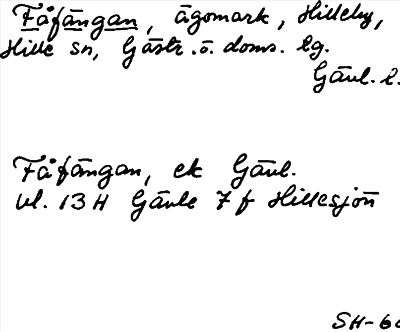 Fåfängan, ägomark, Hilleby,
Hille sn, Gästr. ö. doms. lg.
Gävl. l.
Fåfängan, ek Gävl.
bl. 13 H Gävle 7 f Hillesjön
SH-60